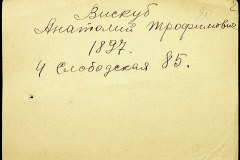 Вискуб
Анатолий Трофимович
1897.
4 Слободская 85.